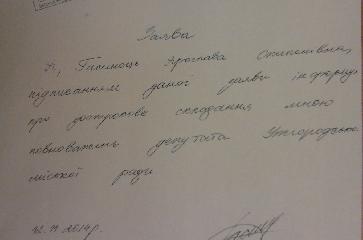 Заява
Я, Гаїинець Ярослава Степанівна,
підписанням даної заяви інформую
про дострокове складання мною
повноважень депутата Ужгородської
міської ради
12.11.2014р.